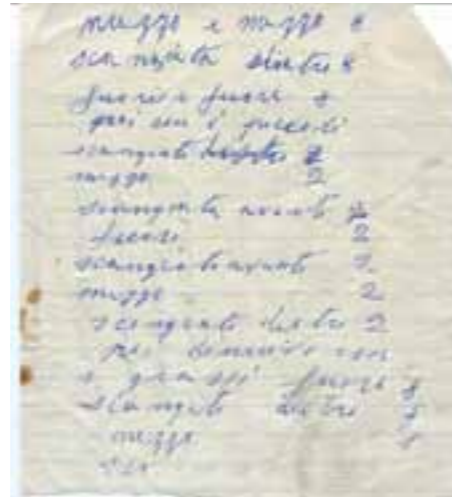 mezzo e mezzo 8
scangiata dietro 8
fuori e fuori 8
poi con i piccoli
scangiate 2
mezzo 2
scangiata avanti 2
fuori 2
scangiate avanti 2
mezzo 2
scangiate dietro 2
poi con
i grossi fuori 8
scangiate dietro
mezzo